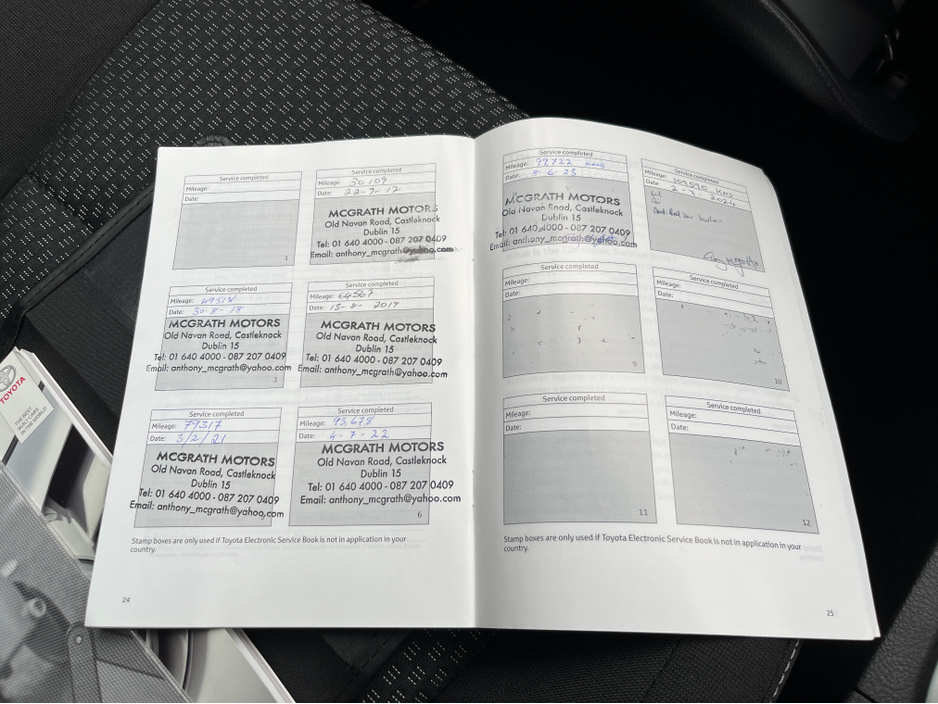 Service completed
Mileage:
Date:
1
Service completed
Mileage: 30109
Date: 22-9-17
MCGRATH MOTORS
Old Navan Road, Castleknock
Dublin 15
Tel: 01 640 4000 - 087 207 0409
Email: anthony_mcgrath@yahoo.com
Service completed
Mileage:
Date: 30-8-18
MCGRATH MOTORS
Old Navan Road, Castleknock
Dublin 15
Tel: 01 640 4000 - 087 207 0409
Email: anthony_mcgrath@yahoo.com
3
Service completed
Mileage: 64567
Date: 13-8-2019
MCGRATH MOTORS
Old Navan Road, Castleknock
Dublin 15
Tel: 01 640 4000 - 087 207 0409
Email: anthony_mcgrath@yahoo.com
Service completed
Mileage: 79317
Date: 3/2/21
MCGRATH MOTORS
Old Navan Road, Castleknock
Dublin 15
Tel: 01 640 4000 - 087 207 0409
Email: anthony_mcgrath@yahoo.com
Service completed
Mileage: 93,478
Date: 4-7-22
MCGRATH MOTORS
Old Navan Road, Castleknock
Dublin 15
Tel: 01 640 4000 - 087 207 0409
Email: anthony_mcgrath@yahoo.com
6
Stamp boxes are only used if Toyota Electronic Service Book is not in application in your
country.
24
Service completed
Mileage: 97722 Kms
Date: 8-6-23
MCGRATH MOTORS
Old Navan Road, Castleknock
Dublin 15
Tel: 01 640 4000 - 087 207 0409
Email: anthony_mcgrath@yahoo.com
Service completed
Mileage: Kms
Date: 2024
Service completed
Mileage:
Date:
9
Service completed
Mileage:
Date:
10
Service completed
Mileage:
Date:
11
Service completed
Mileage:
Date:
12
Stamp boxes are only used if Toyota Electronic Service Book is not in application in your
country.
25
TOYOTA
THE BEST
BUILT CARS
IN THE WORLD